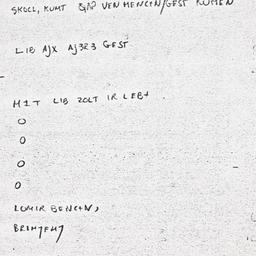 SKOCL, KUMT ... VEN MENCEN/GEST KUMEN
LIB AJX AJ3R3 GEST
MIT LIB ZOLT IR LEB+
O
O
O
O
LOMIR BENCEN,